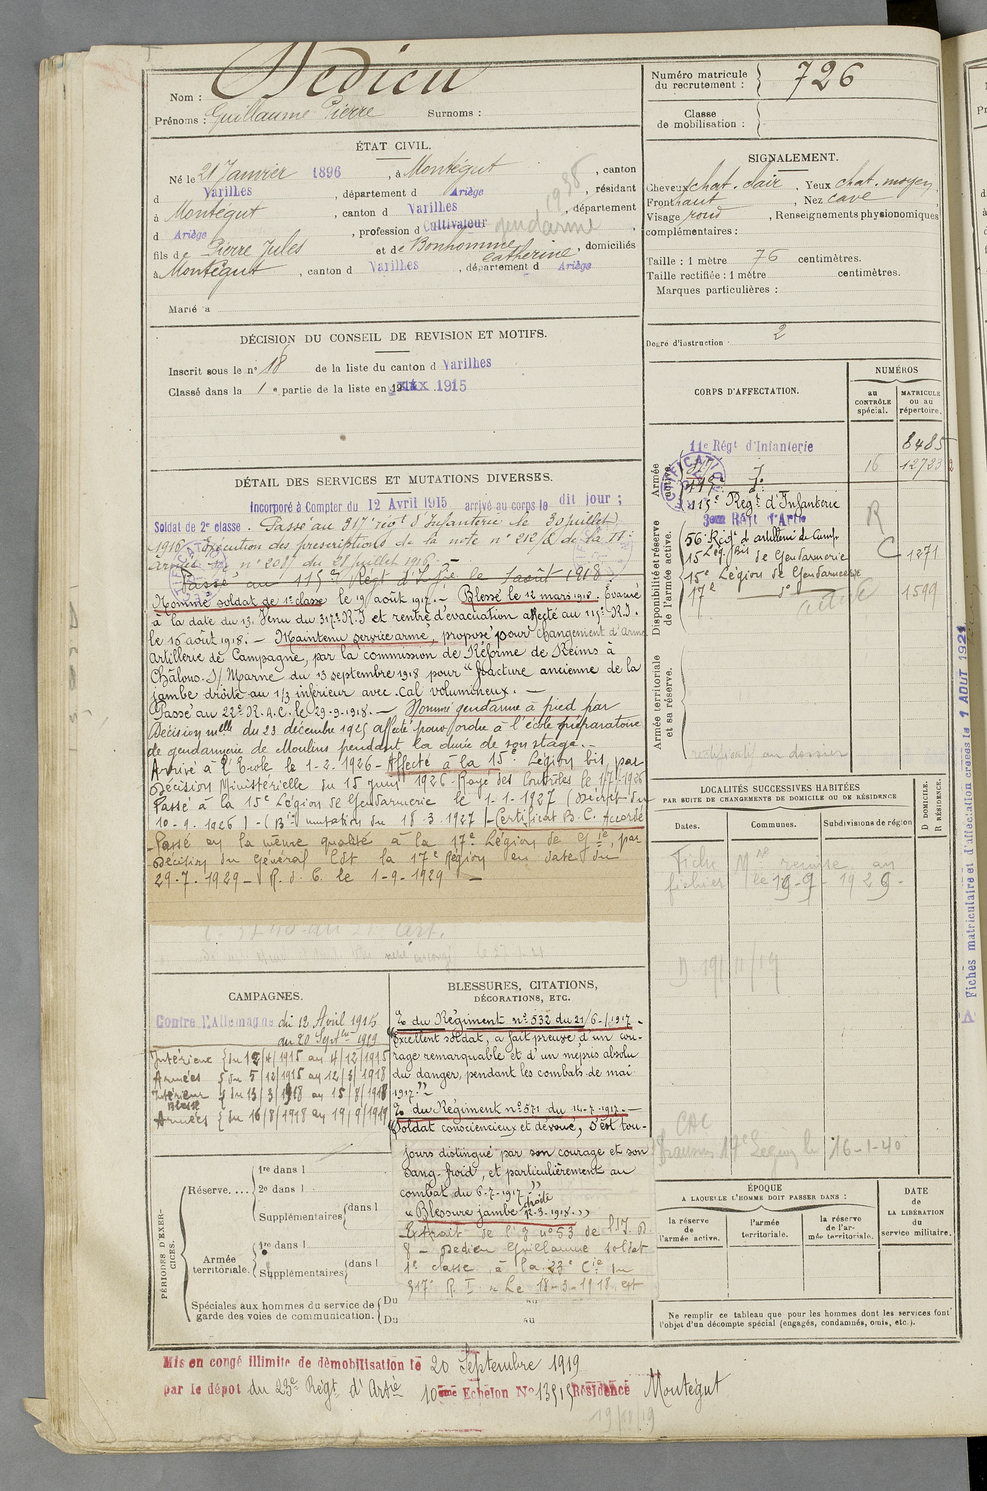 Nom : Dedieu
Prénoms : Guillaume Pierre Surnoms :
ÉTAT CIVIL.
Né le 21 Janvier 1896, à Montégut, canton
d Varilhes, département d Ariège, résidant
à Montégut, canton d Varilhes, département
d Ariège, profession d Cultivateur gendarme
fils de Pierre Jules et de Bonhomme Catherine, domiciliés
à Montégut, canton d Varilhes, département d Ariège
Marié à
DÉCISION DU CONSEIL DE REVISION ET MOTIFS.
Inscrit sous le n° 18 de la liste du canton d Varilhes
Classé dans la 1e partie de la liste en 1915
DÉTAIL DES SERVICES ET MUTATIONS DIVERSES.
Incorporé à Compter du 12 Avril 1915 arrivé au corps le dit jour ;
Soldat de 2e classe. Passé au 317e régt d'Infanterie le 30 juillet
1916. Exécution des prescriptions de la note n° 212/
Armée n° 205/ du 21 juillet 1916. —
Passé au 115e Régt d'Ie le 1 août 1918
Nommé soldat de 1e classe le 19 août 1917. — Blessé le 12 mars 1918. Evacué
à la date du 13. Venu du 317e R.I et rentré d'evacuation affecté au 115e R.I.
le 16 août 1918. — Maintenu service armé, proposé pour changement d'arme
Artillerie de Campagne, par la commission de Réforme de Reims à
Châlons-s/Marne du 13 septembre 1918 pour "fracture ancienne de la
jambe droite au 1/3 inférieur avec cal volumineux. —
Passé au 22e R.A.C. le 29-9-1918. — Nommé gendarme à pied par
Décision mlle du 23 décembre 1925 affecté pour ordre à l'école préparatoire
de gendarmerie de Moulins pendant la durée de son stage. —
Arrivé à l'Ecole le 1-2-1926 - Affecté à la 15e Légion bis, par
Décision Ministérielle du 15 juin 1926 - Rayé des Contrôles le 1/7-1926
Passé à la 15e Légion de Gendarmerie le 1-1-1927 (Décret du
10-9-1926) - (Bin mutation du 18-3-1927) - Certificat B.C. Accordé
Passé en la même qualité à la 17e Légion de Gie, par
Décision du Général Cdt la 17e Région en date du
29-7-1929 - R. d. C. le 1-9-1929 —
CAMPAGNES.
Contre l'Allemagne du 12 Avril 1915
au 20 Septbre 1919
Intérieur du 12/4/1915 au 4/12/1915
Armées du 5/12/1915 au 12/3/1918
Intérieur Blessé du 13/3/1918 au 15/8/1918
Armées du 16/8/1918 au 19/9/1919
BLESSURES, CITATIONS,
DÉCORATIONS, ETC.
O. du Régiment n° 532 du 21/6/1917 -
"Excellent soldat, a fait preuve d'un cou-
rage remarquable et d'un mépris absolu
du danger, pendant les combats de mai
1917."
O. du Régiment n° 571 du 14-7-1917. —
"Soldat consciencieux et dévoué, s'est tou-
jours distingué par son courage et son
sang-froid, et particulièrement au
combat du 6-7-1917"
"Blessure jambe droite 12-3-1918."
Extrait de l'O n° 53 de l'I.D.
8 - Dedieu Guillaume soldat
1e classe à la 23e Cie du
317e R.I. "Le 18-3-1918 est
PÉRIODES D'EXERCICES.
Réserve....
1re dans l
2e dans l
Supplémentaires dans l
Armée territoriale.
1re dans l
Supplémentaires dans l
Spéciales aux hommes du service de garde des voies de communication.
Du au
Du au
Mis en congé illimité de démobilisation le 20 Septembre 1919
par le dépôt du 23e Régt d'Artie 10ème Echelon N° 13515 Résidence Montégut
19/11/19
Numéro matricule du recrutement : 726
Classe de mobilisation :
SIGNALEMENT.
Cheveux chat. clair, Yeux chat. moyen
Front haut, Nez cave
Visage rond, Renseignements physionomiques
complémentaires :
Taille : 1 mètre 76 centimètres.
Taille rectifiée : 1 mètre centimètres.
Marques particulières :
Degré d'instruction 2
CORPS D'AFFECTATION.
NUMÉROS
AU CONTRÔLE spécial.
MATRICULE ou au répertoire.
Armée active.
11e Régt d'Infanterie 8485
16 12723
115e Regt d'Infanterie
Disponibilité et réserve de l'armée active.
56e Régt d'artillerie de Camp R
15 Lég. Bis de Gendarmerie C 1271
15e Légion de Gendarmerie
17e do 1599
Armée territoriale et sa réserve.
rectificatif au dossier
LOCALITÉS SUCCESSIVES HABITÉES
PAR SUITE DE CHANGEMENTS DE DOMICILE OU DE RÉSIDENCE
D DOMICILE. R RÉSIDENCE.
Dates. Communes. Subdivisions de région
Fiche Mre remise au
fichier le 19-9-1929.
D 19/11/19
CAC
Transm. 17e Legion le 16-1-40
ÉPOQUE
A LAQUELLE L'HOMME DOIT PASSER DANS :
la réserve de l'armée active.
l'armée territoriale.
la réserve de l'armée territoriale.
DATE de LA LIBÉRATION du service militaire.
Ne remplir ce tableau que pour les hommes dont les services font
l'objet d'un décompte spécial (engagés, condamnés, omis, etc.).
Fiches matriculaire et d'affectation créées le 1 AOUT 1921